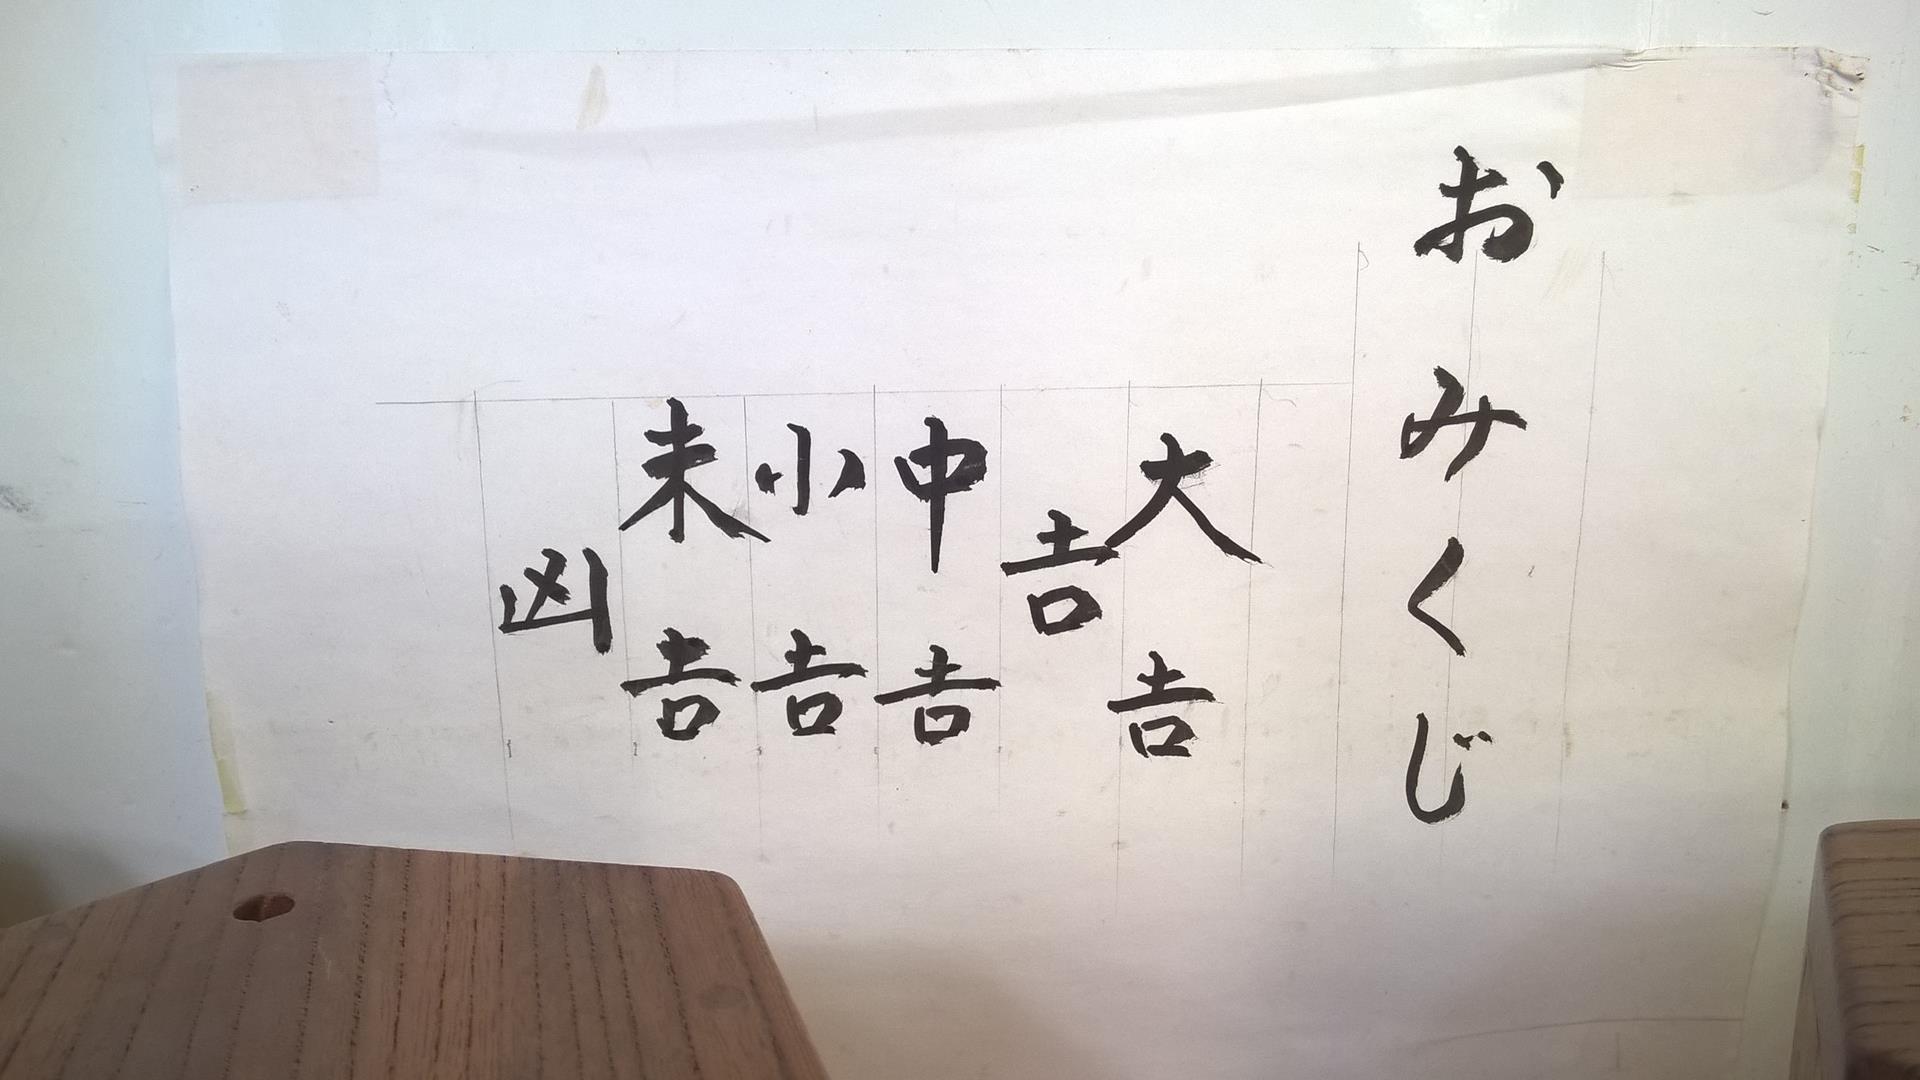 おみくじ
大吉
吉
中吉
小吉
未吉
凶